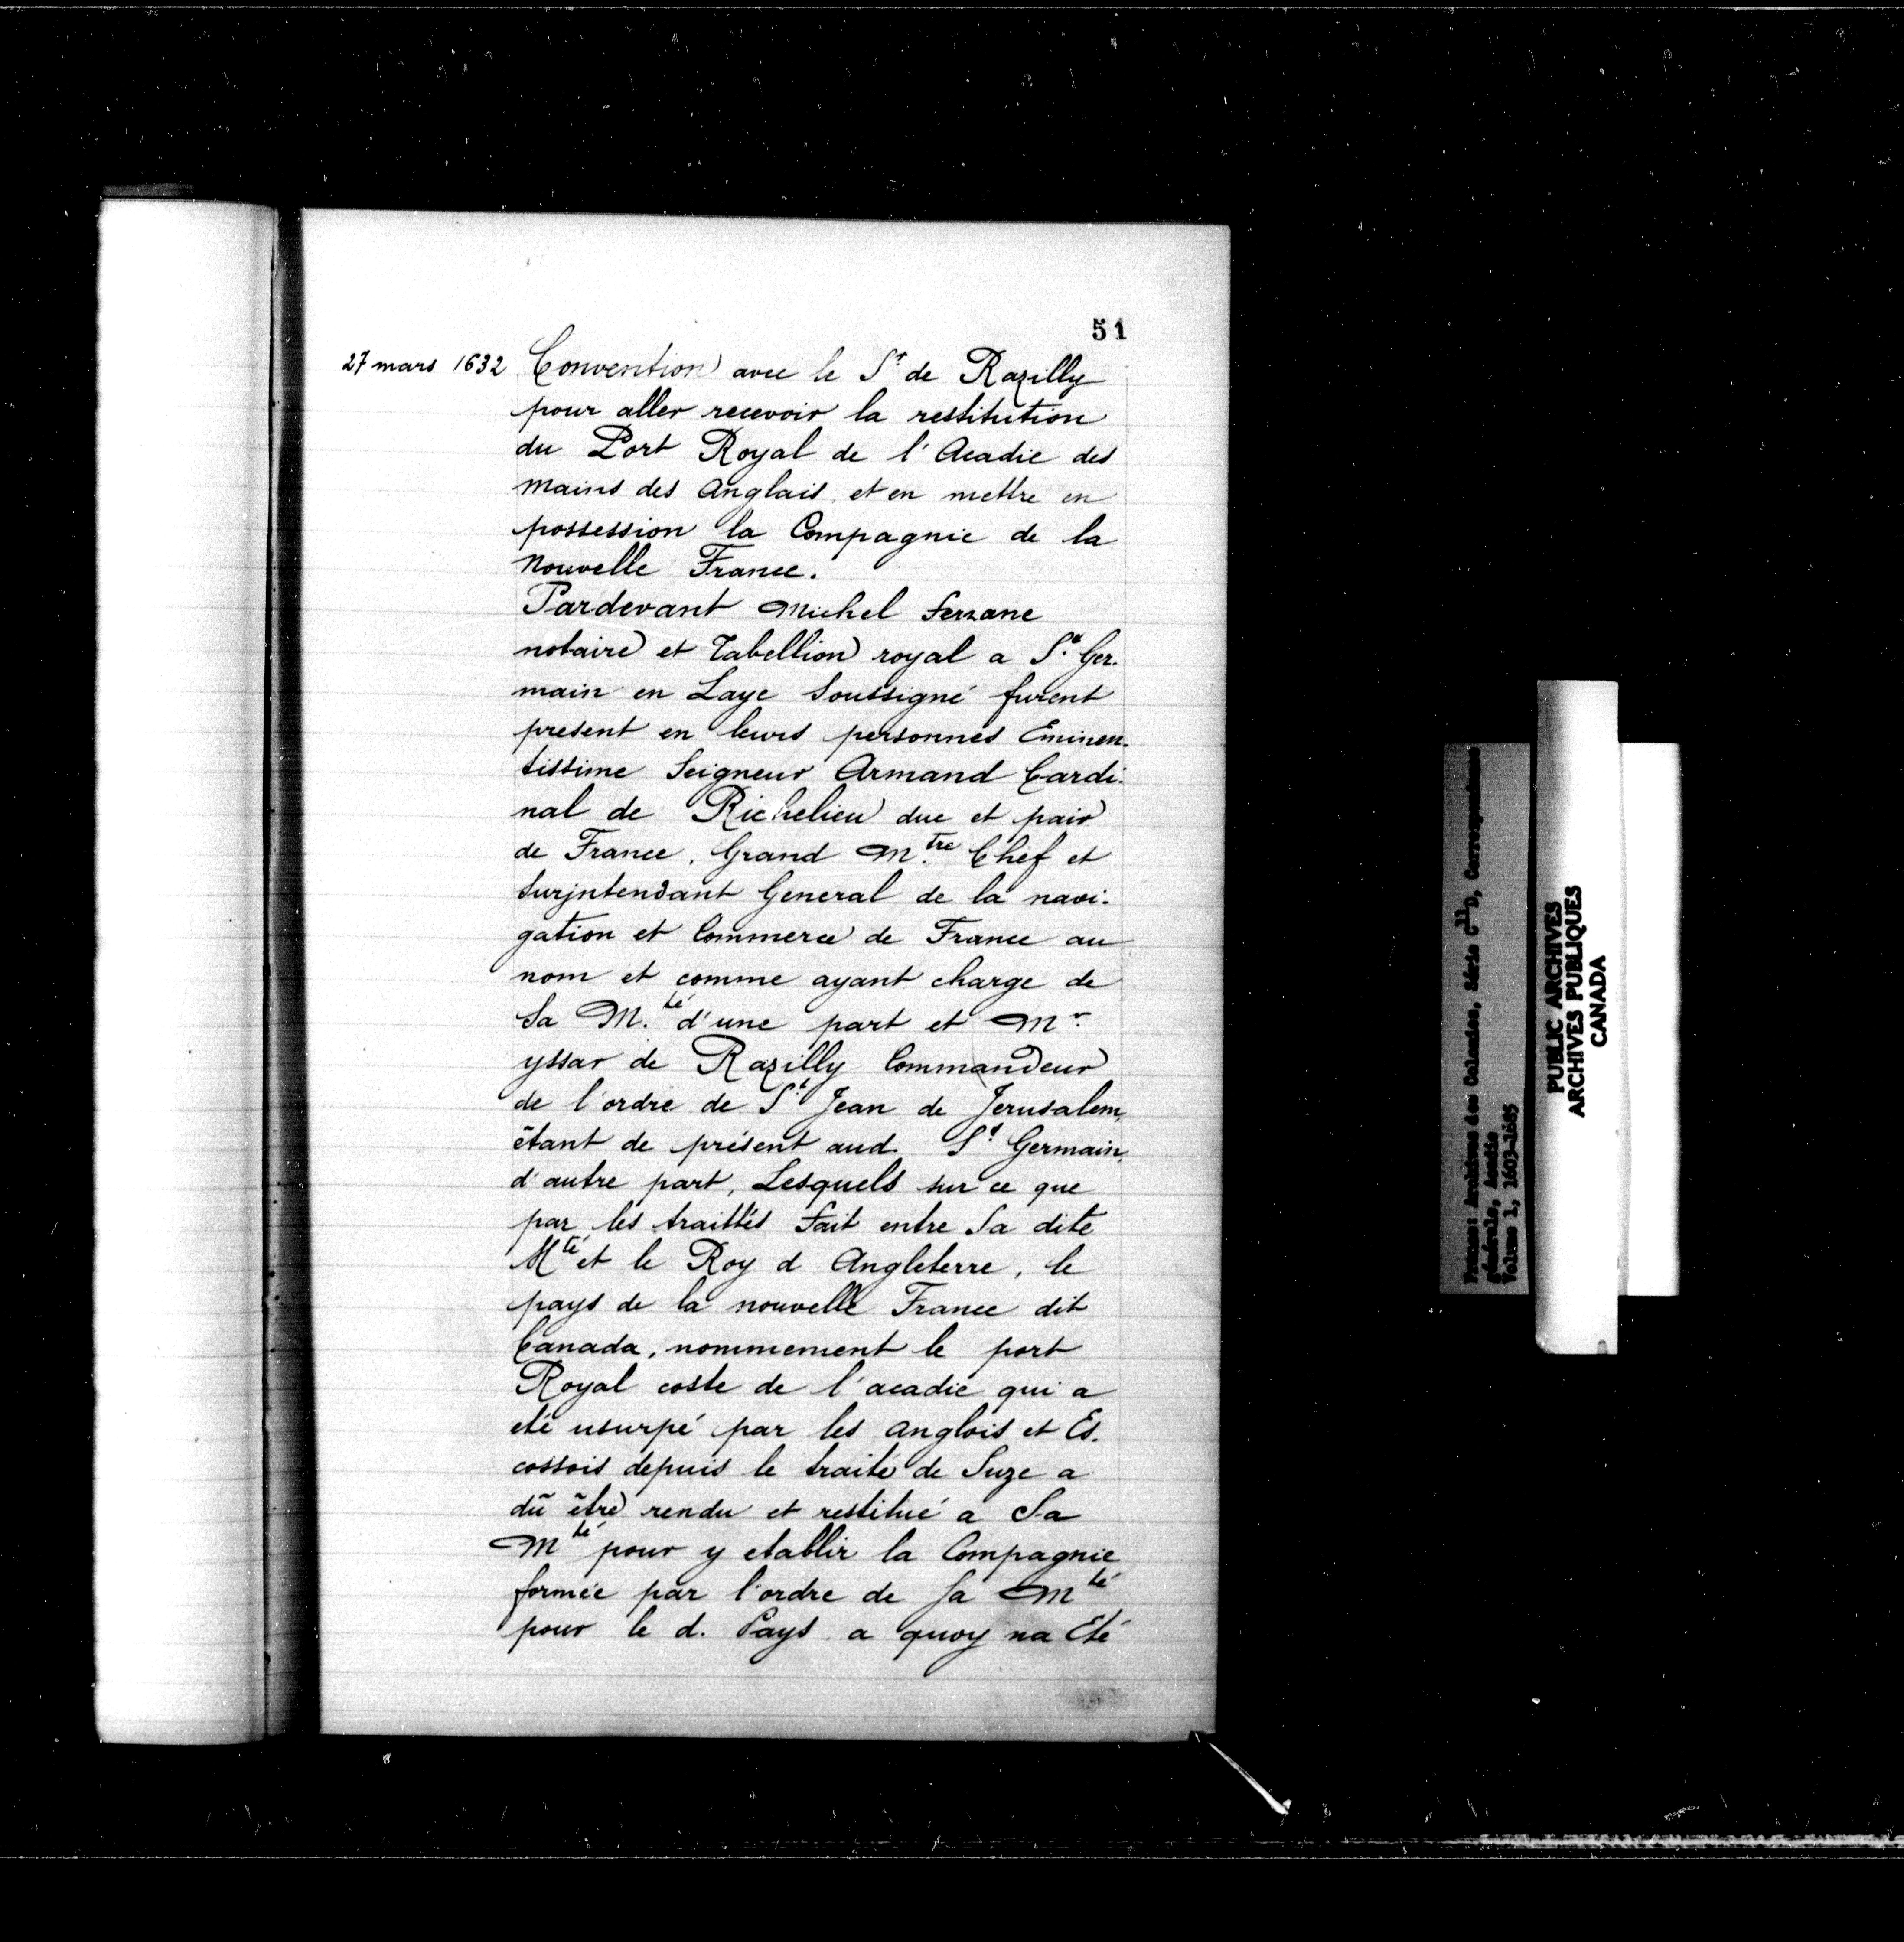 51
27 mars 1632 Convention avec le Sr de Razilly
pour aller recevoir la restitution
du Port Royal de l'Acadie des
mains des Anglais et en mettre en
possession la Compagnie de la
Nouvelle France.
Pardevant Michel Ferrane
notaire et Tabellion royal a St Ger-
main en Laye Soussigné furent
present en leurs personnes Eminen-
tissime Seigneur Armand Cardi-
nal de Richelieu duc et pair
de France, Grand M.tre Chef et
Surjntendant General de la navi-
gation et Commerce de France au
nom et comme ayant charge de
Sa M.té d'une part et Mr
yssar de Razilly Commandeur
de l'ordre de St Jean de Jerusalem,
étant de présent aud. St Germain,
d'autre part, Lesquels sur ce que
par les traittés fait entre Sa dite
Mté et le Roy d Angleterre, le
pays de la nouvelle France dit
Canada, nommement le port
Royal coste de l'acadie qui a
eté usurpé par les anglois et Es-
cossois depuis le traite de Suze a
dû être rendu et restitué a Sa
Mté pour y etablir la Compagnie
formée par l'ordre de Sa Mté
pour le d. Pays a quoy na Eté
France: Archives des Colonies, Série C11D, Correspondance
générale, Acadie
Volume 1, 1603-1685
PUBLIC ARCHIVES
ARCHIVES PUBLIQUES
CANADA